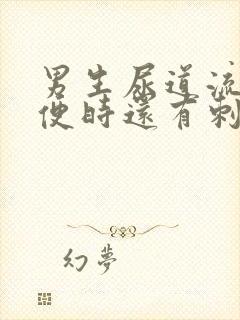 男生尿道流
便時還有刺
幻夢